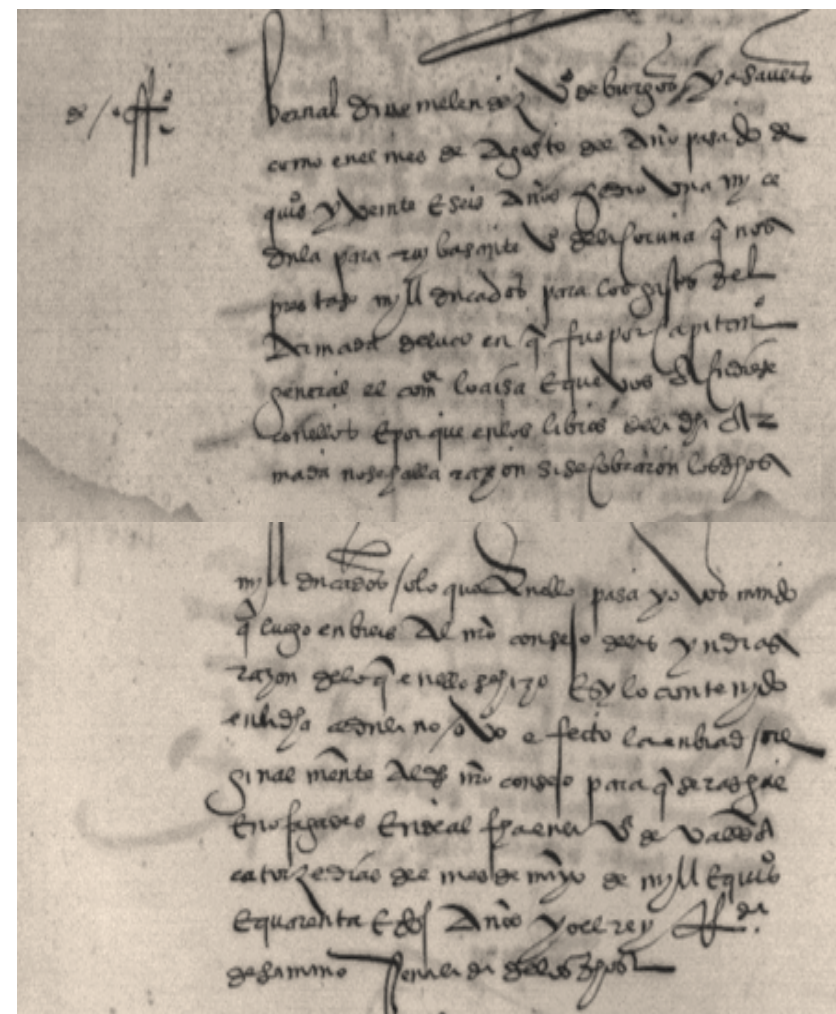 de / offo
bernal diaz melendez vº de burgos ya saveis
como en el mes de Agosto del Año pasado de
quiºs y veinte E seis Años se dio una my ce
dula para ruy basante vº dela coruña q nos
prestase myll ducados para los gastos del
Armada del uco en q fue por capitan
general el comor loaisa E que vos Acudiese
con ellos E por que en los libros dela dha Ar
mada no se halla razon si se cobraron los dhos
myll ducados / o lo que en ello pasa yo vos mando
q luego enbieis Al nro consejo delas yndias
razon delo q en ello se hizo E sy lo contenydo
en la dha cedula no ovo efecto la enbiad / ore
ginal mente Al dho nro consejo para q se rasgue
E no fagades Ende al fha en la vª de valldd A
catorze dias del mes de mayo de myll E quiºs
E quarenta E dos Años yo el rey
de samano señalada delos dhos